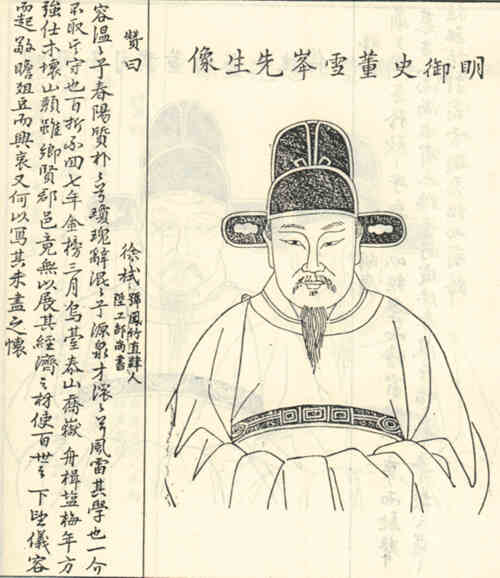 明御史董雪岑先生像
贊曰
徐栻
號鳳竹直隸人
陞工部尚書
容溫〻乎春陽質朴〻兮瓊瑰辭混〻乎源泉才滚〻兮風雷其學也一介
不取其守也百折不回七年金榜三月烏臺泰山喬嶽舟楫鹽梅年方
強仕木壞山頹雖鄉賢郡邑竟無以展其經濟之材使百世之下望儀容
而起敬瞻俎豆而興哀又何以寫其未盡之懷